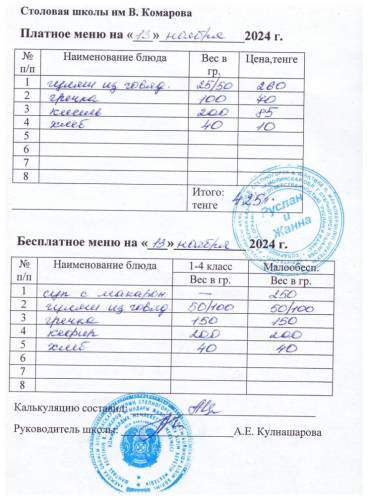 Столовая школы им В. Комарова
Платное меню на « 13 » ноября 2024 г.
№ п/п Наименование блюда Вес в гр. Цена,тенге
1 гуляш из говяд. 25/50 260
2 гречка 100 70
3 кисель 200 85
4 хлеб 40 10
5
6
7
8
Итого: 425
тенге
Руслан
и
Жанна
Бесплатное меню на « 13 » ноября 2024 г.
№ п/п Наименование блюда 1-4 класс Малообесп.
Вес в гр. Вес в гр.
1 суп с макарон — 250
2 гуляш из говяд 50/100 50/100
3 гречка 150 150
4 кефир 200 200
5 хлеб 40 40
6
7
8
Калькуляцию составил:
Руководитель школы: А.Е. Кулнашарова